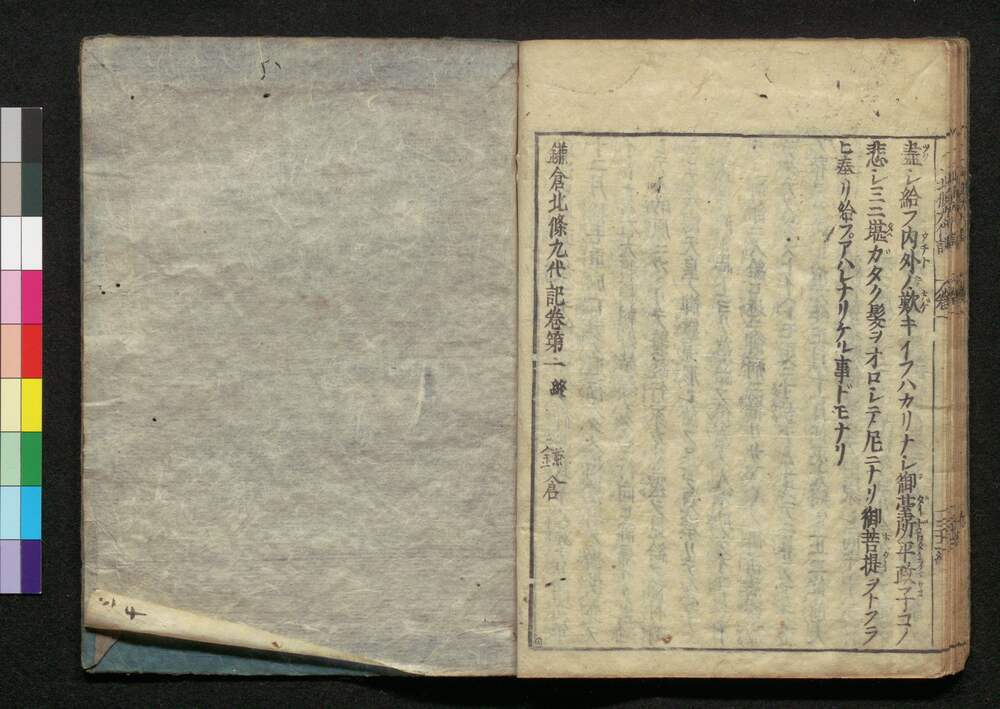 盡シ給フ内外ノ歎キイフハカリナシ御䑓所平政子コノ
悲シミニ堪カタク髪ヲオロシテ尼ニナリ御菩提ヲトフラ
ヒ奉リ給フアハレナリケル事ドモナリ
鎌倉北條九代記卷第一終
鎌倉